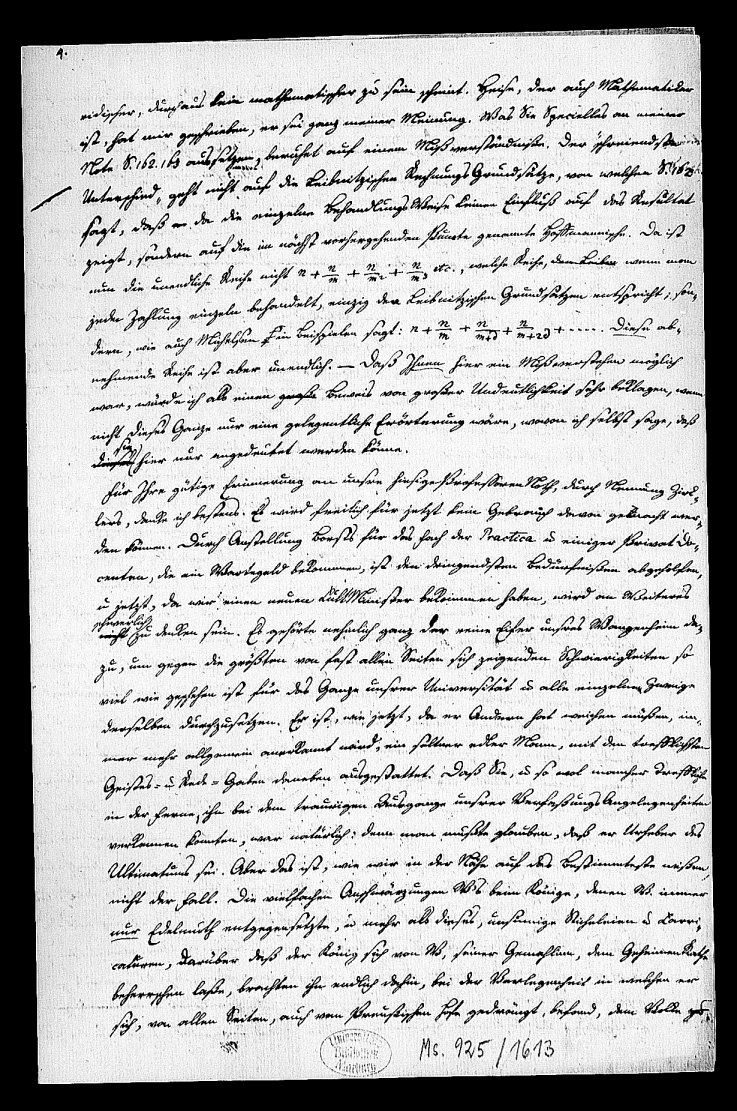 4.
ridischer, durchaus kein mathematischer zu sein scheint. Heise, der auch Mathematiker
ist, hat mir geschrieben, er sei ganz meiner Meinung. Was Sie Specielles an meiner
Note S. 162. 163 aussetzen, beruhet auf einem Mißverständnisse. Der „schreiendste
Unterschied„ geht nicht auf die Leibnitzischen RechnungsGrundsätze, von welchen S. 162
sagt, daß da die einzelne BehandlungsWeise keinen Einfluß auf das Resultat
zeigt, sondern auf die im nächst vorhergehenden Punkte genannte Hoffmannische. Da ist
nun die unendliche Reihe nicht n + n/m + n/m2 + n/m3 etc., welche Reihe, wenn man
jede Zahlung einzeln behandelt, einzig den Leibnitzischen Grundsätzen entspricht; son-
dern, wie auch Michelsen in Beispielen sagt: n + n/m + n/m+d + n/m+2d + ..... Diese ab-
nehmende Reihe ist aber unendlich. — Daß Ihnen hier ein Mißverstehen möglich
war, würde ich als einen Beweis von großer Undeutlichkeit sehr beklagen, wenn
nicht dieses Ganze nur eine gelegentliche Erörterung wäre, wovon ich selbst sage, daß
sie hier nur angedeutet werden könne.
Für Ihre gütige Erinnerung an unsre hiesige ProfessorenNoth, durch Nennung Zirk-
lers, danke ich bestens. Es wird freilich für jetzt kein Gebrauch davon gemacht wer-
den können. Durch Anstellung Borsts für das Fach der Practica u einiger PrivatDo-
centen, die ein Wartegeld bekommen, ist den dringendsten Bedürfnißen abgeholfen,
u jetzt, da wir einen neuen CultMinister bekommen haben, wird an Weiteres
schwerlich zu denken sein. Es gehörte nehmlich ganz der reine Eifer unsres Wangenheim da-
zu, um gegen die größten von fast allen Seiten sich zeigenden Schwierigkeiten so
viel wie geschehen ist für das Ganze unserer Universität u alle einzelne Zweige
derselben durchzusetzen. Er ist, wie jetzt, da er Andern hat weichen müßen, im-
mer mehr allgemein anerkannt wird, ein seltner edler Mann, mit den trefflichsten
Geistes- u Rede-Gaben daneben ausgestattet. Daß Sie, u so wol mancher Treffliche
in der Ferne, ihn bei dem traurigen Ausgange unsrer VerfaßungsAngelegenheiten
verkennen konnten, war natürlich: denn man mußte glauben, daß er Urheber des
Ultimatums sei. Aber das ist, wie wir in der Nähe auf das Bestimmteste wißen,
nicht der Fall. Die vielfachen Anschwärzungen Ws beim Könige, denen W. immer
nur Edelmuth entgegensetzte, u mehr als dieses, unsinnige Sticheleien u Carri-
caturen, darüber daß der König sich von W, seiner Gemahlinn, dem GeheimenRathe
beherrschen laße, brachten ihn endlich dahin, bei der Verlegenheit in welcher er
sich, von allen Seiten, auch vom Preußischen Hofe gedrängt, befand, dem Volke zu
Universitäts
Bibliothek
Marburg
Ms. 925/1613